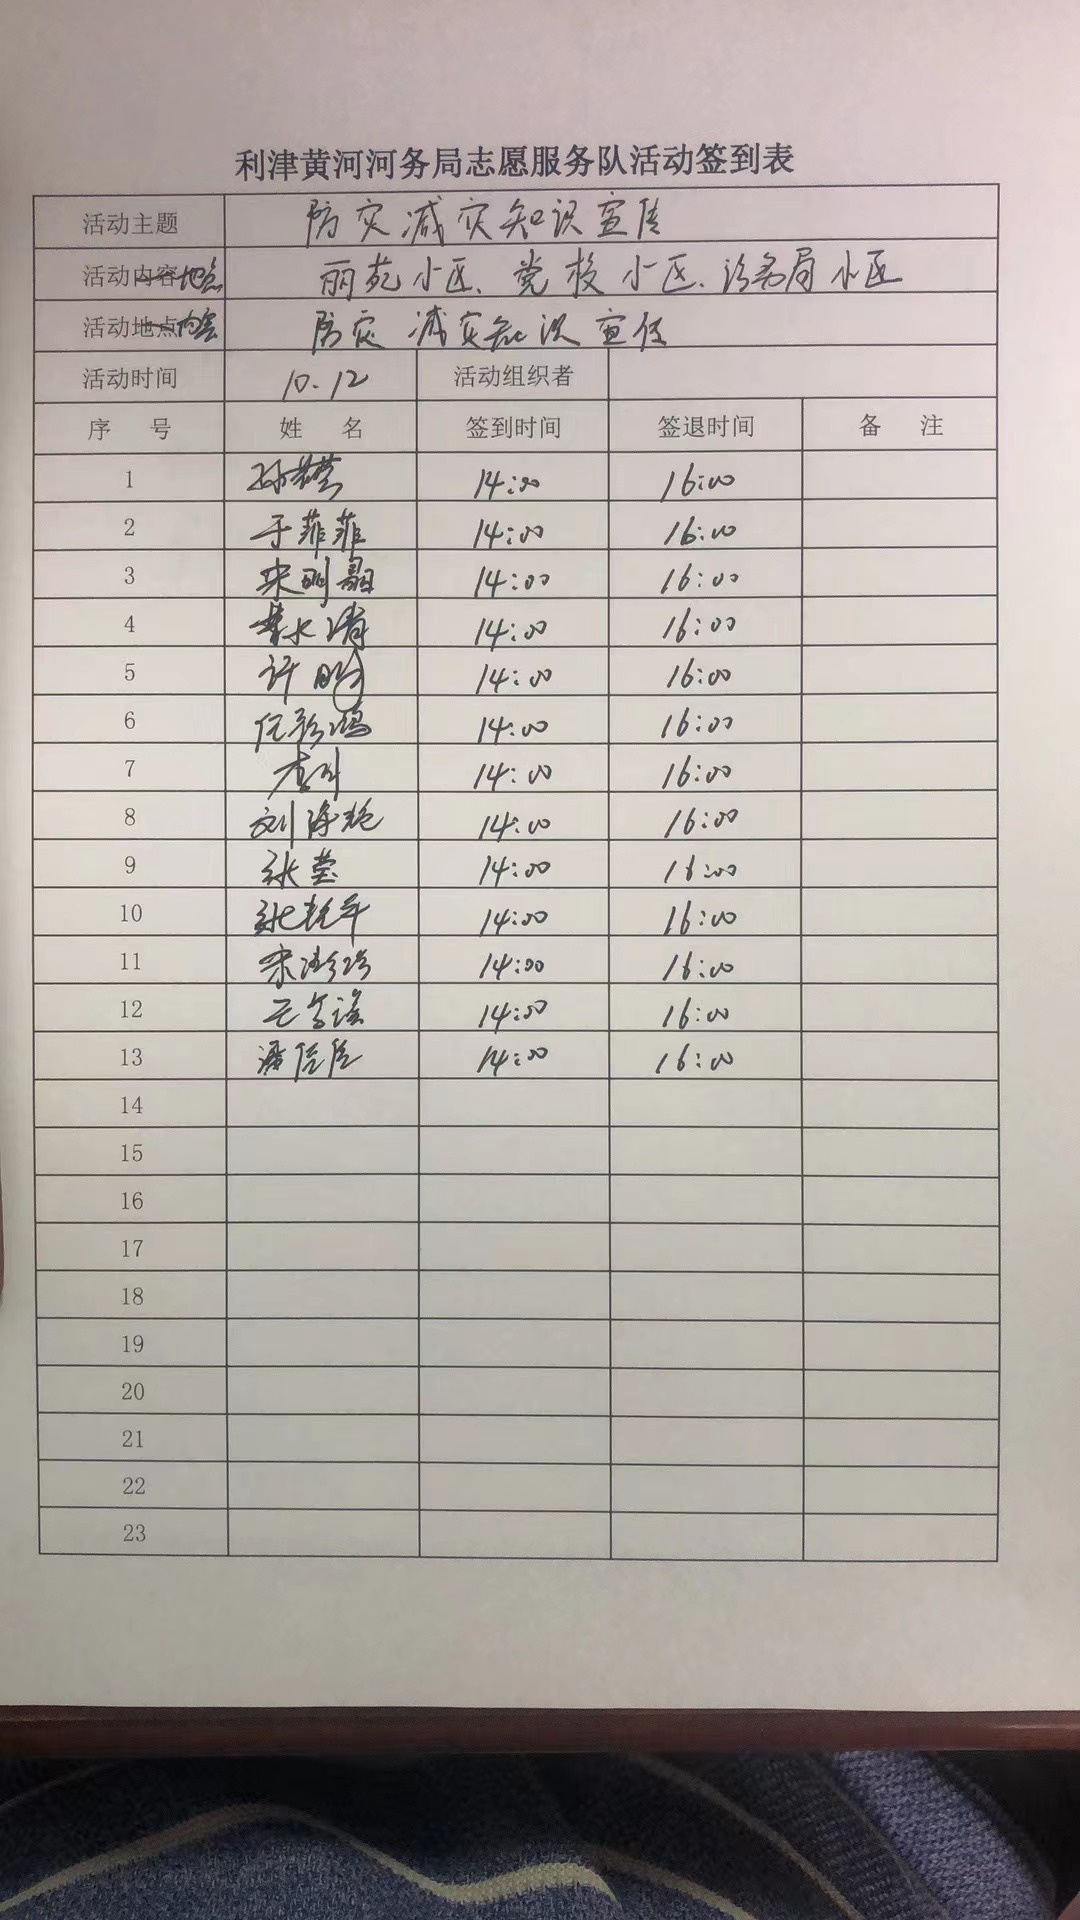 利津黄河河务局志愿服务队活动签到表
活动主题 防灾减灾知识宣传
活动内容地点 丽苑小区、党校小区、河务局小区
活动地点内容 防灾减灾知识宣传
活动时间 10.12 活动组织者
序 号 姓 名 签到时间 签退时间 备 注
1 14:00 16:00
2 于菲菲 14:00 16:00
3 14:00 16:00
4 14:00 16:00
5 许明 14:00 16:00
6 14:00 16:00
7 14:00 16:00
8 刘海艳 14:00 16:00
9 张莹 14:00 16:00
10 14:00 16:00
11 14:00 16:00
12 14:00 16:00
13 14:00 16:00
14
15
16
17
18
19
20
21
22
23